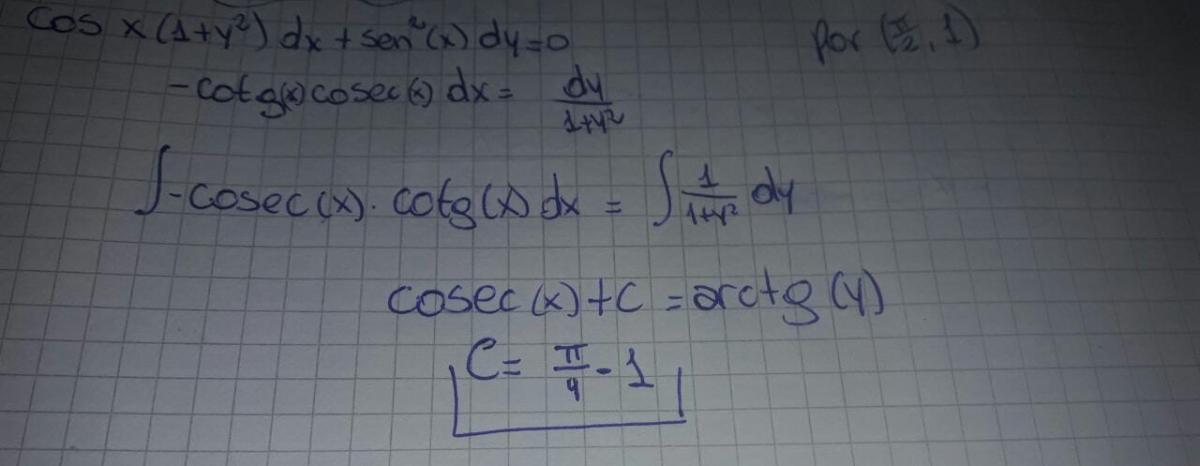 cos x (1+y²) dx + sen²(x) dy = 0 por (π/2, 1)
-cotg(x) cosec(x) dx = dy/1+y²
∫-cosec(x). cotg(x) dx = ∫ 1/1+y² dy
cosec(x) + C = arctg(y)
C = π/4 - 1